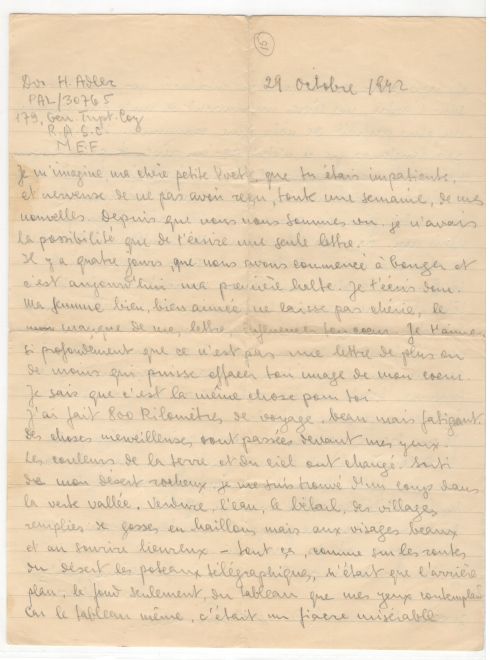 15
Dvr H. Adler
PAL/30765
179, Gen. Trpt. Coy
R.A.S.C.
M.E.F
29 octobre 1942
Je m'imagine ma chère petite Yvette, que tu étais impatiente
et nerveuse de ne pas avoir reçu, toute une semaine, de mes
nouvelles. Depuis que nous nous sommes vu, je n'avais
la possibilité que de t'écrire une seule lettre.
Il y a quatre jours, que nous avons commencé à bouger et
c'est aujourd'hui ma première halte. Je t'écris donc.
Ma femme bien, bien aimée ne laisse pas chérie, le
manque de ma lettre ton coeur. Je t'aime
si profondément que ce n'est pas une lettre de plus ou
de moins qui puisse effacer ton image de mon coeur.
Je sais que c'est la même chose pour toi.
J'ai fait 800 Kilomètres de voyage, beau mais fatigant.
Des choses merveilleuses sont passées devant mes yeux.
Les couleurs de la terre et du ciel ont changé. Sorti
de mon désert rocheux, je me suis trouvé d'un coup dans
la verte vallée. Verdure, l'eau, le bétail, des villages
remplies de gosses en haillons, mais aux visages beaux
et au sourire heureux – tout ça, comme sur les routes
du désert les poteaux télégraphiques, n'était que l'arrière
plan, le fond seulement, du tableau que mes yeux contemplaient
Car le tableau même, c'était un fiacre misérable